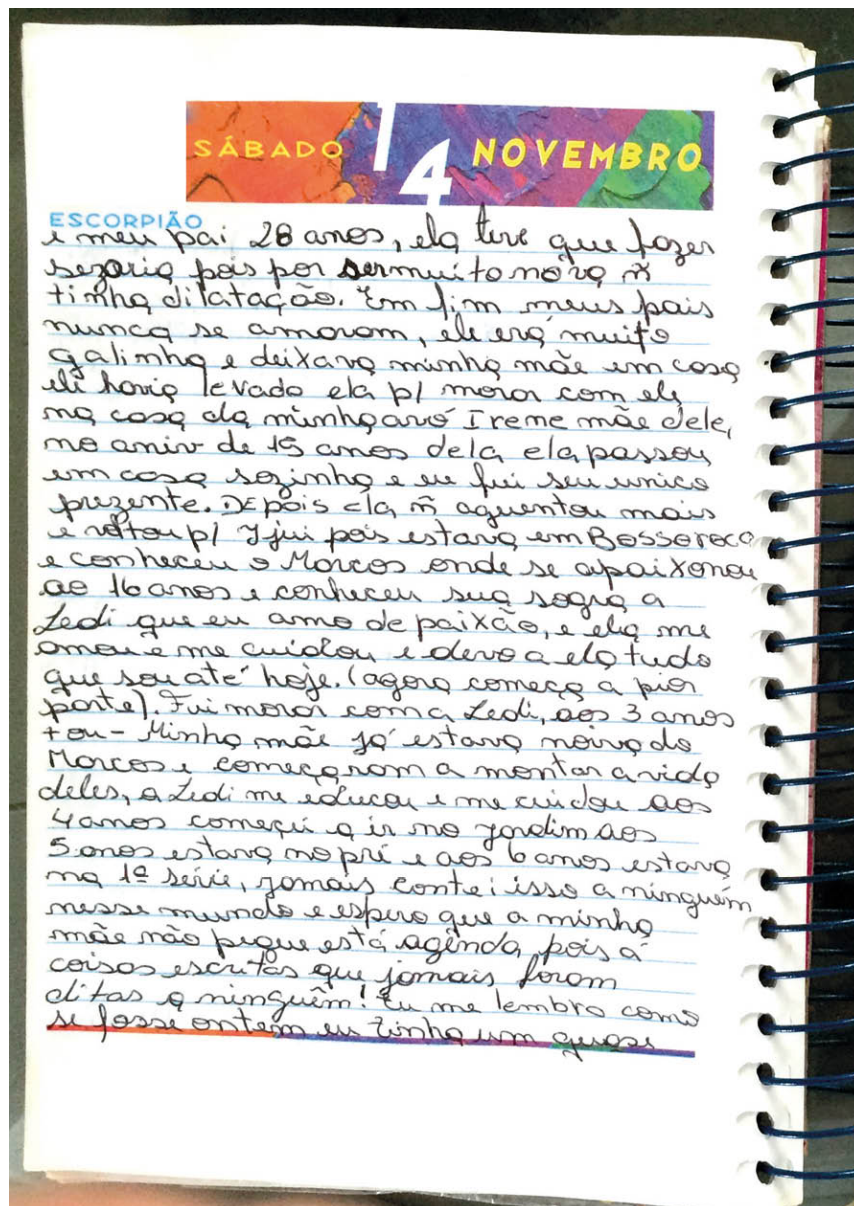 SÁBADO 14 NOVEMBRO
ESCORPIÃO
e meu pai 28 anos, ela teve que fazer
sezaria pois por ser muito nova ñ
tinha dilatação. Em fim meus pais
nunca se amavam, ele era muito
galinha e deixava minha mãe em casa
ele havia levado ela p/ morar com ele
na casa da minha avó Irene mãe dele,
no aniv de 15 anos dela ela passou
em casa sozinha e eu fui seu unico
prezente. Depois ela ñ aguentou mais
e voltou p/ Ijui pois estava em Bossoroca
e conheceu o Marcos onde se apaixonou
ao 16 anos e conheceu sua sogra a
Ledi que eu amo de paixão, e ela me
amou e me cuidou e devo a ela tudo
que sou até hoje. (agora começa a pior
parte). Fui morar com a Ledi, aos 3 anos
+ou- Minha mãe já estava noiva do
Marcos e começaram a montar a vida
deles, a Ledi me educou e me cuidou aos
4 anos começei a ir no jardim aos
5 anos estava no pré e aos 6 anos estava
na 1ª série, jamais contei isso a ninguém
nesse mundo e espero que a minha
mãe não pegue está agênda, pois á
coisas escritas que jamais foram
ditas a ninguêm! Eu me lembro como
se fosse ontem eu tinha um quase